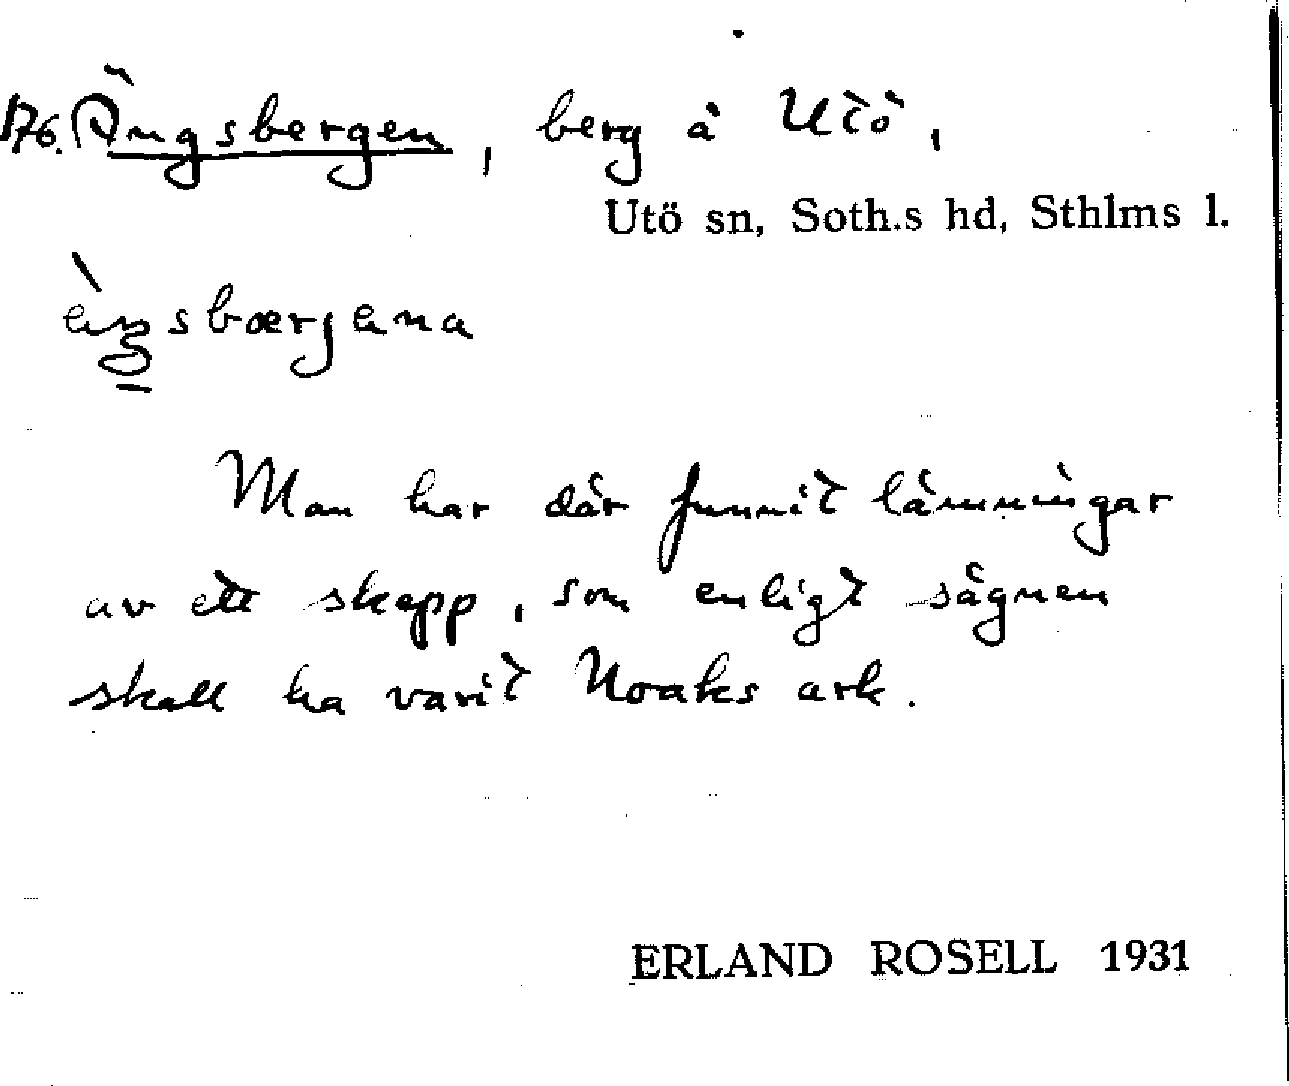 176. Ängsbergen, berg å Utö,
Utö sn, Soth.s hd, Sthlms l.
èŋsbærjena
Man har där funnit lämningar
av ett skepp, som enligt sägnen
skall ha varit Noaks ark.
ERLAND ROSELL 1931